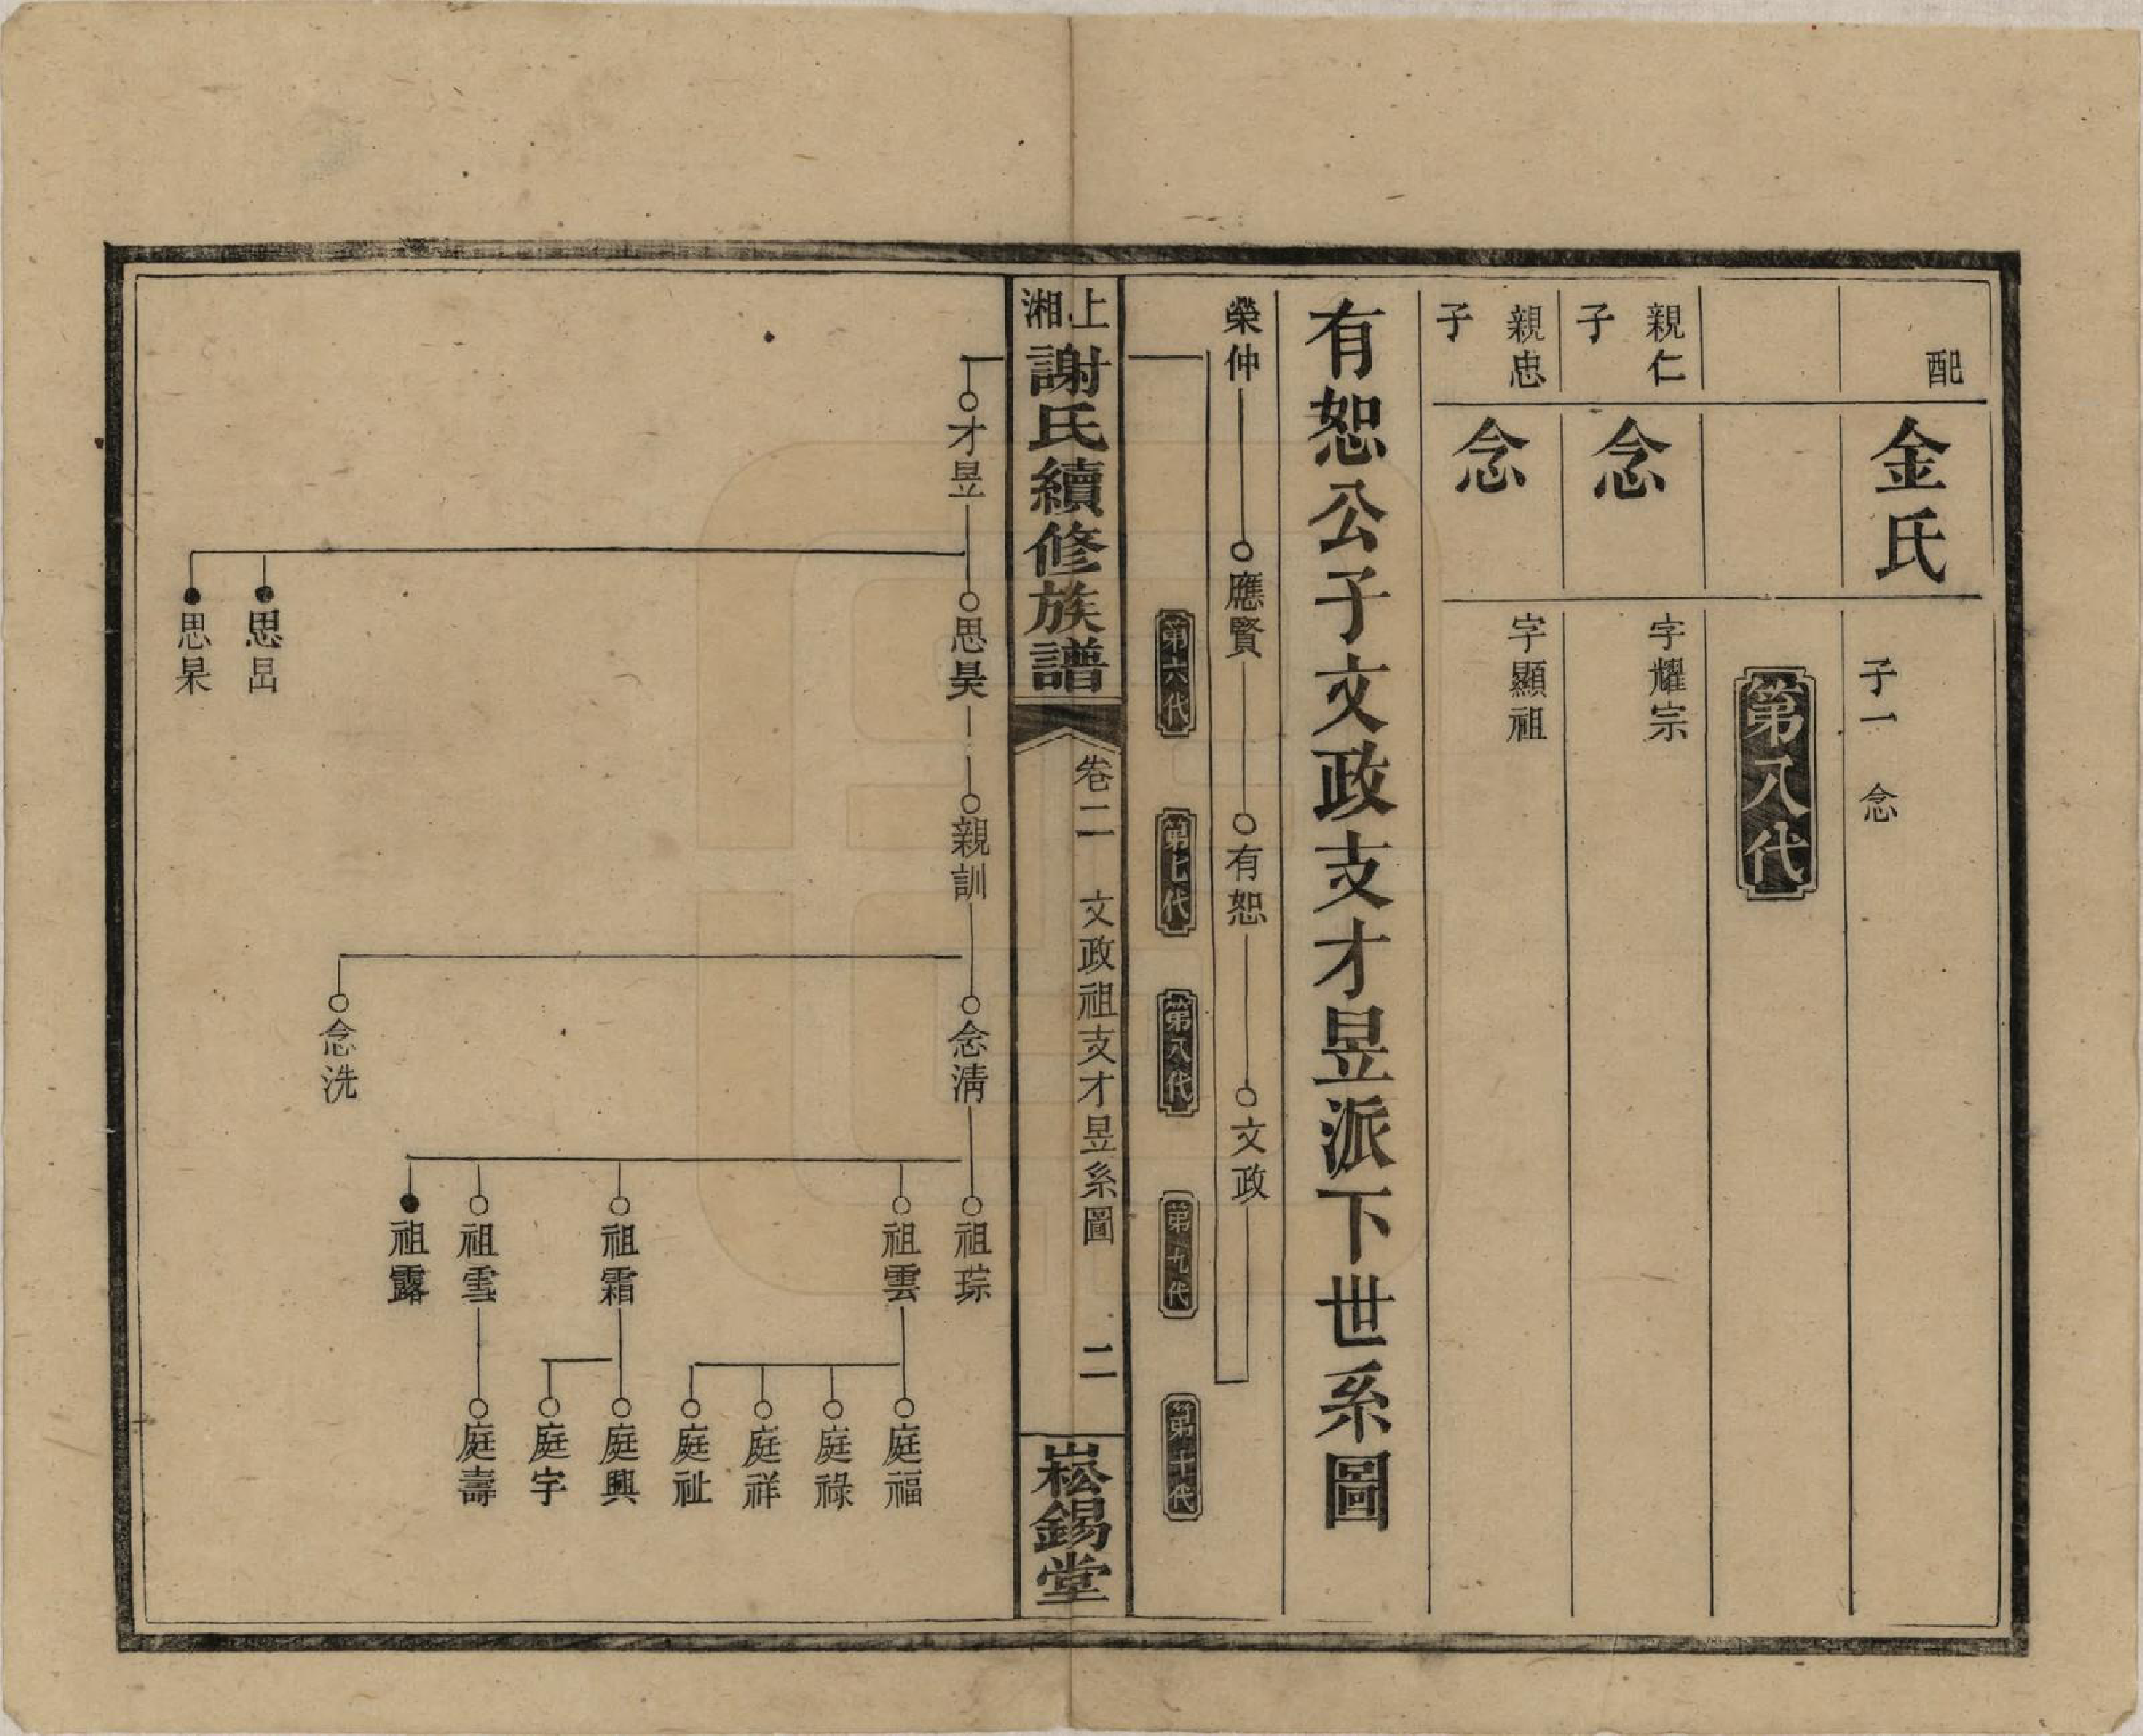 配
金氏
子一　念
第八代
親仁
子
念
字耀宗
親忠
子
念
字顯祖
有恕公子文政支才昱派下世系圖
榮仲
應賢
有恕
文政
第六代
第七代
第八代
第九代
第十代
上湘
謝氏續修族譜
卷二
文政祖支才昱系圖
二
崧錫堂
才昱
思昊
思昌
思杲
親訓
念清
念洗
祖琮
祖雲
祖霜
祖雪
祖露
庭福
庭祿
庭祥
庭祉
庭興
庭字
庭壽